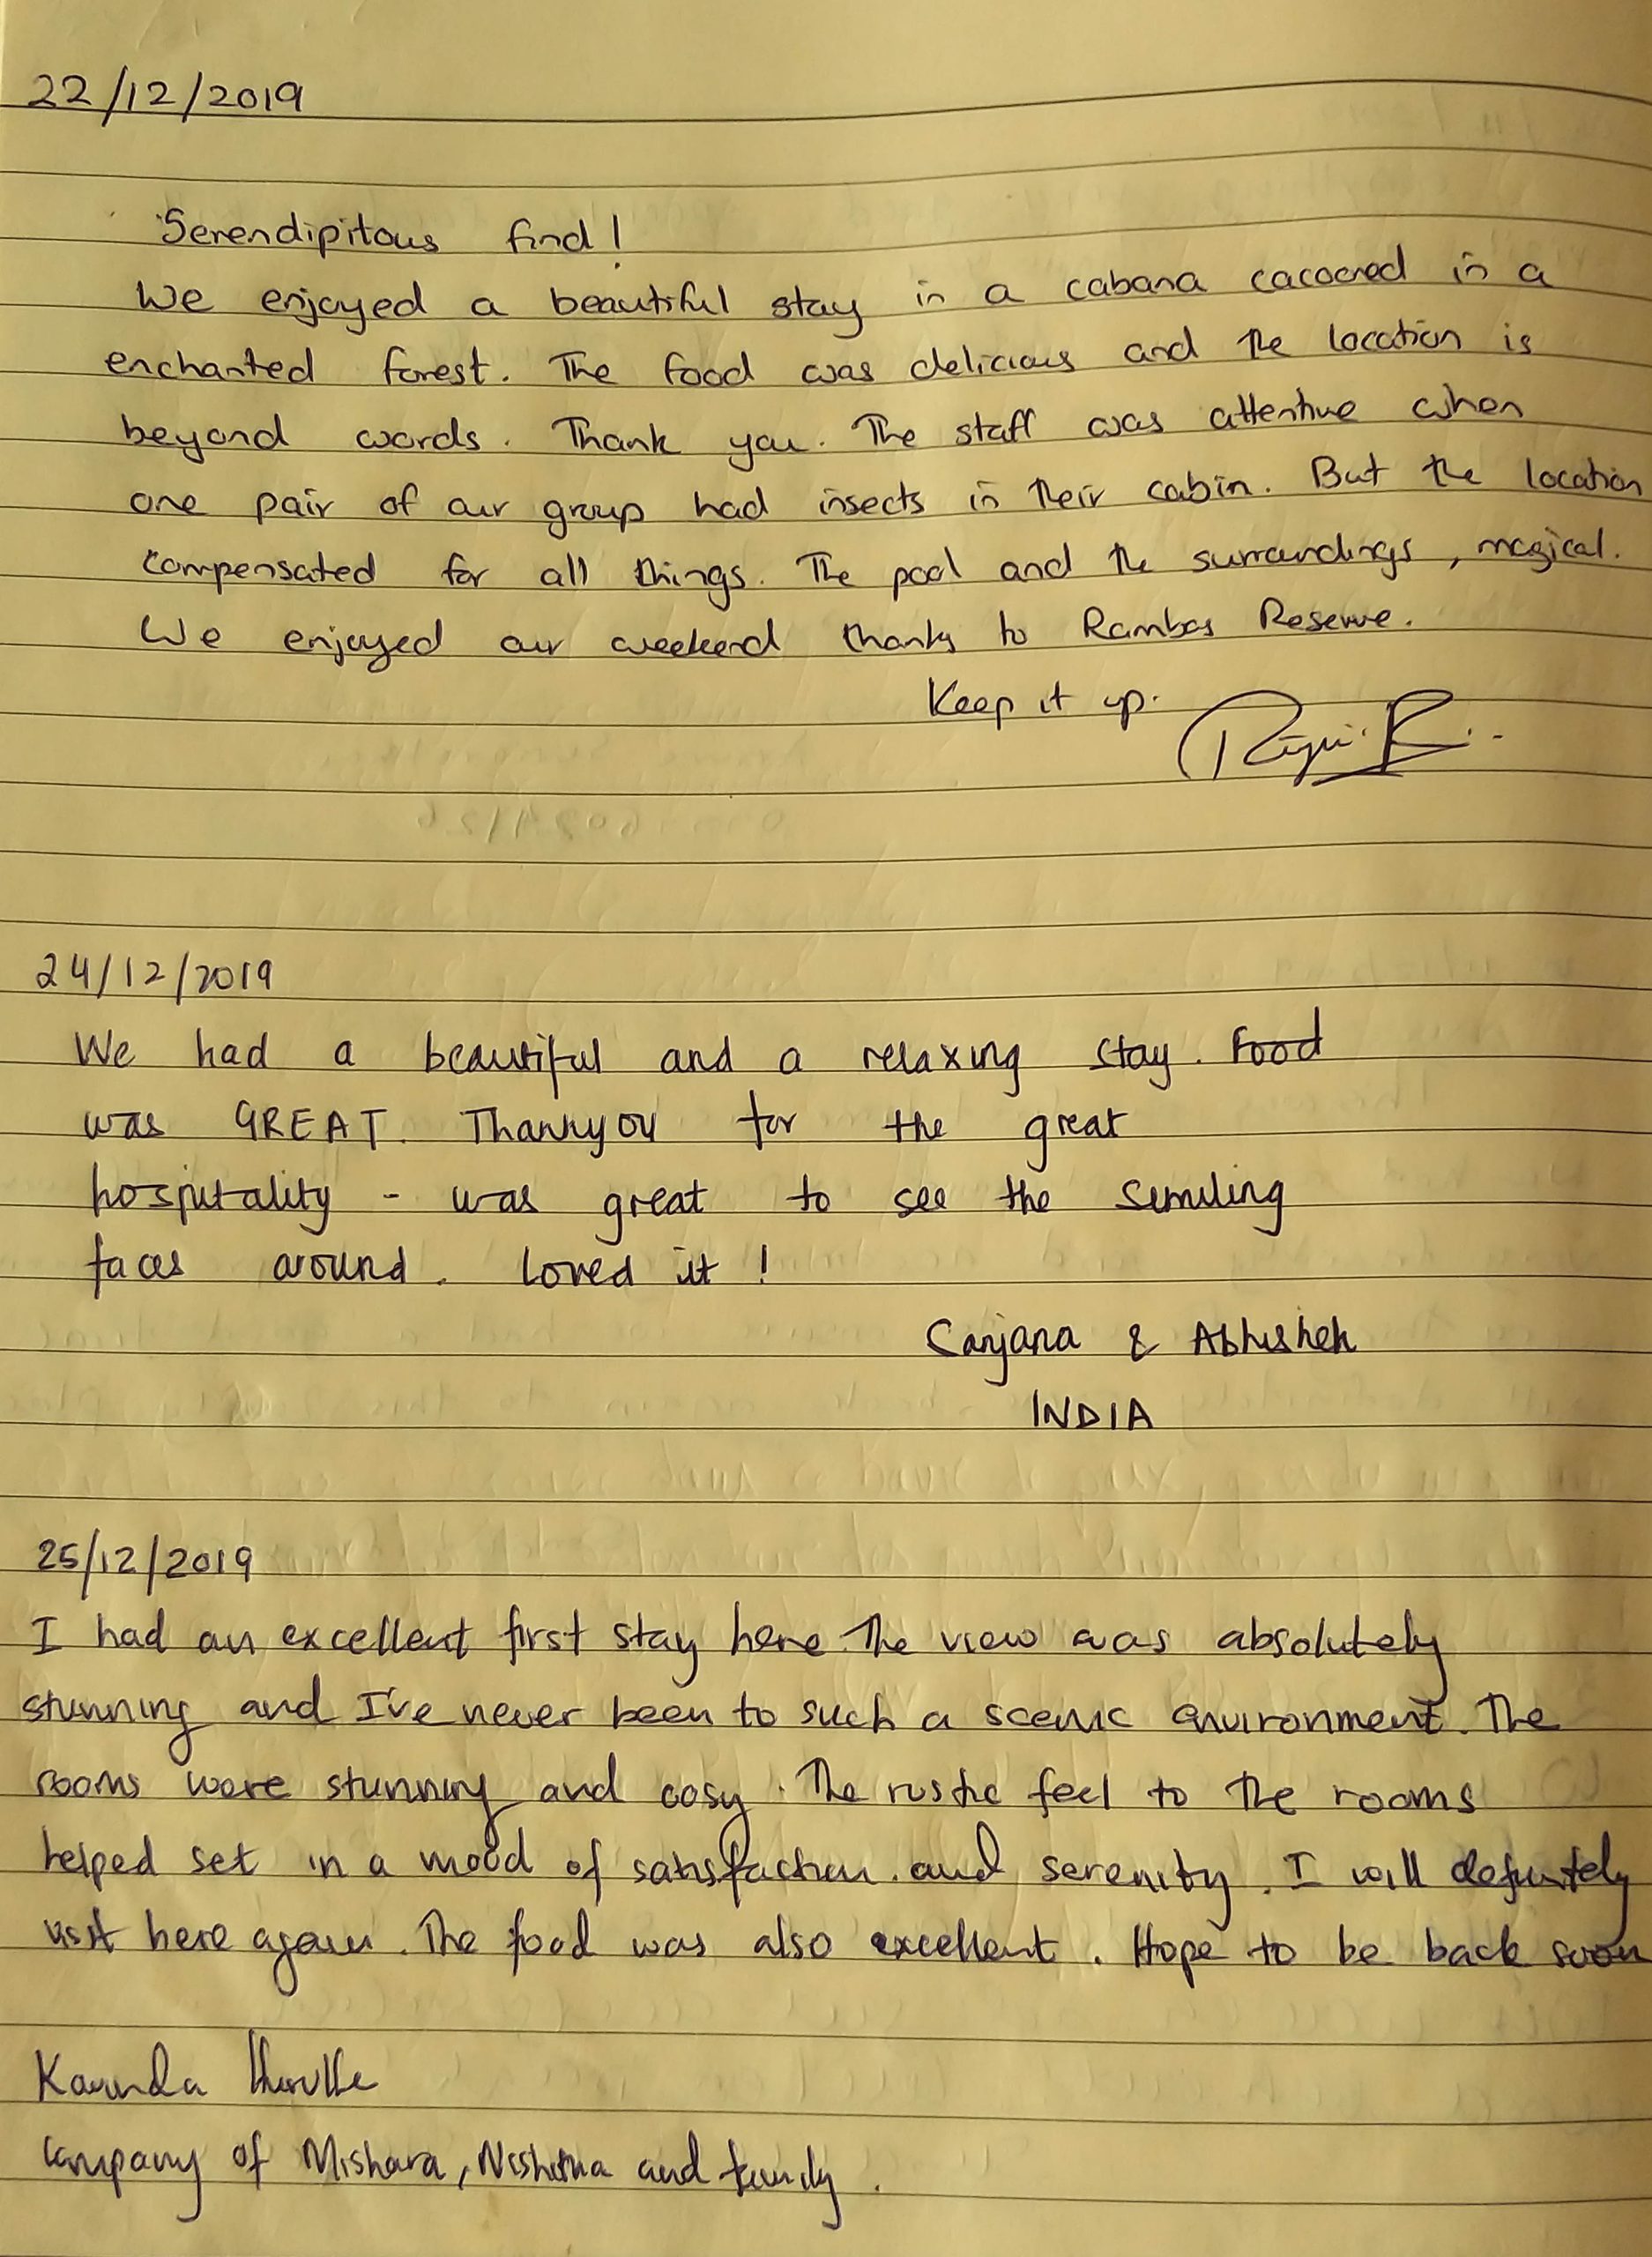 22/12/2019
Serendipitous find!
We enjoyed a beautiful stay in a cabana cacooned in a
enchanted forest. The food was delicious and the location is
beyond words. Thank you. The staff was attentive when
one pair of our group had insects in their cabin. But the location
compensated for all things. The pool and the surroundings, magical.
We enjoyed our weekend thanks to Rambas Reserve.
Keep it up.
24/12/2019
We had a beautiful and a relaxing stay. Food
was GREAT. Thankyou for the great
hospitality - was great to see the smiling
faces around. Loved it!
Sanjana & Abhishek
INDIA
25/12/2019
I had an excellent first stay here. The view was absolutely
stunning and I've never been to such a scenic environment. The
rooms were stunning and cosy. The rustic feel to the rooms
helped set in a mood of satisfaction and serenity. I will definitely
visit here again. The food was also excellent. Hope to be back soon
Kavinda
company of Mishara, and family.